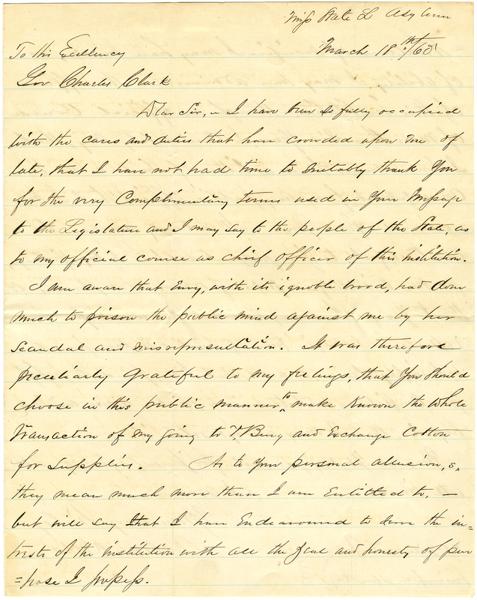 Miss State L Asylum
To His Excellency March 18th/65
Gov Charles Clark
Dear Sir, I have been so fully occupied
with the cares and duties that have crowded upon me of
late, that I have not had time to suitably thank you
for the very Complimentary terms used in your Message
to the Legislature and I may say to the people of the State, as
to my official course as chief officer of this institution.
I am aware that Envy, with its ignoble brood, had done
much to poison the public mind against me by her
scandal and misrepresentation. It was therefore
peculiarly grateful to my feelings, that you should
choose in this public manner to make known the whole
transaction of my going to V.Burg and Exchange Cotton
for supplies. As to your personal allusion,
they mean much more than I am Entitled to, –
but will say that I have Endeavoured to serve the in=
trests of the institution with all the zeal and honesty of pur
=pose I possess.